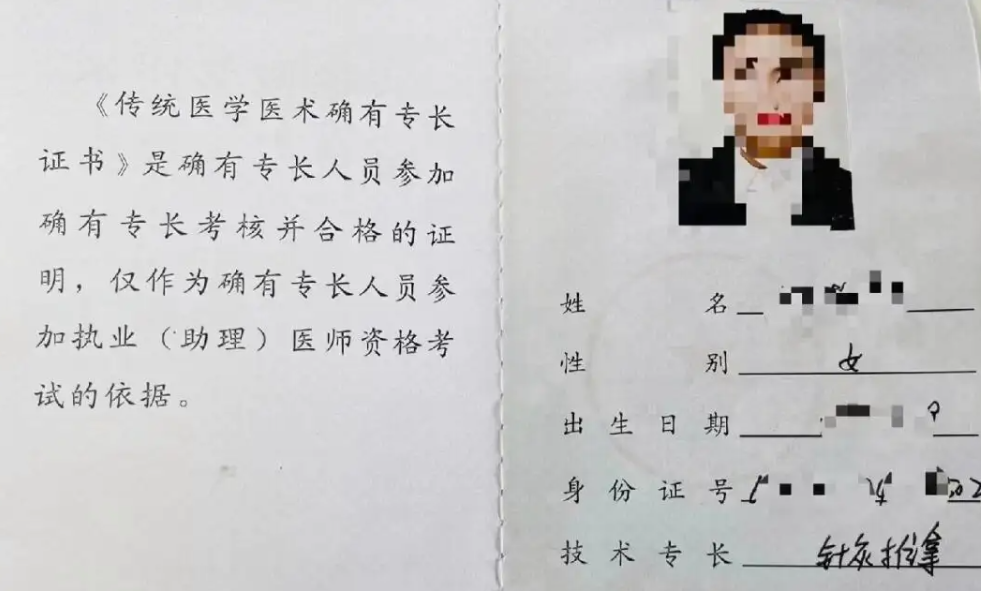 《传统医学医术确有专长
证书》是确有专长人员参加
确有专长考核并合格的证
明，仅作为确有专长人员参
加执业（助理）医师资格考
试的依据。
姓名
性别 女
出生日期
身份证号
技术专长 针灸推拿